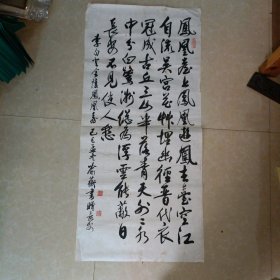 鳳凰臺上鳳凰遊鳳去臺空江
自流吳宮花草埋幽徑晉代衣
冠成古丘三山半落青天外二水
中分白鷺洲總為浮雲能蔽日
長安不見使人愁
李白登金陵鳳凰臺 己巳 書